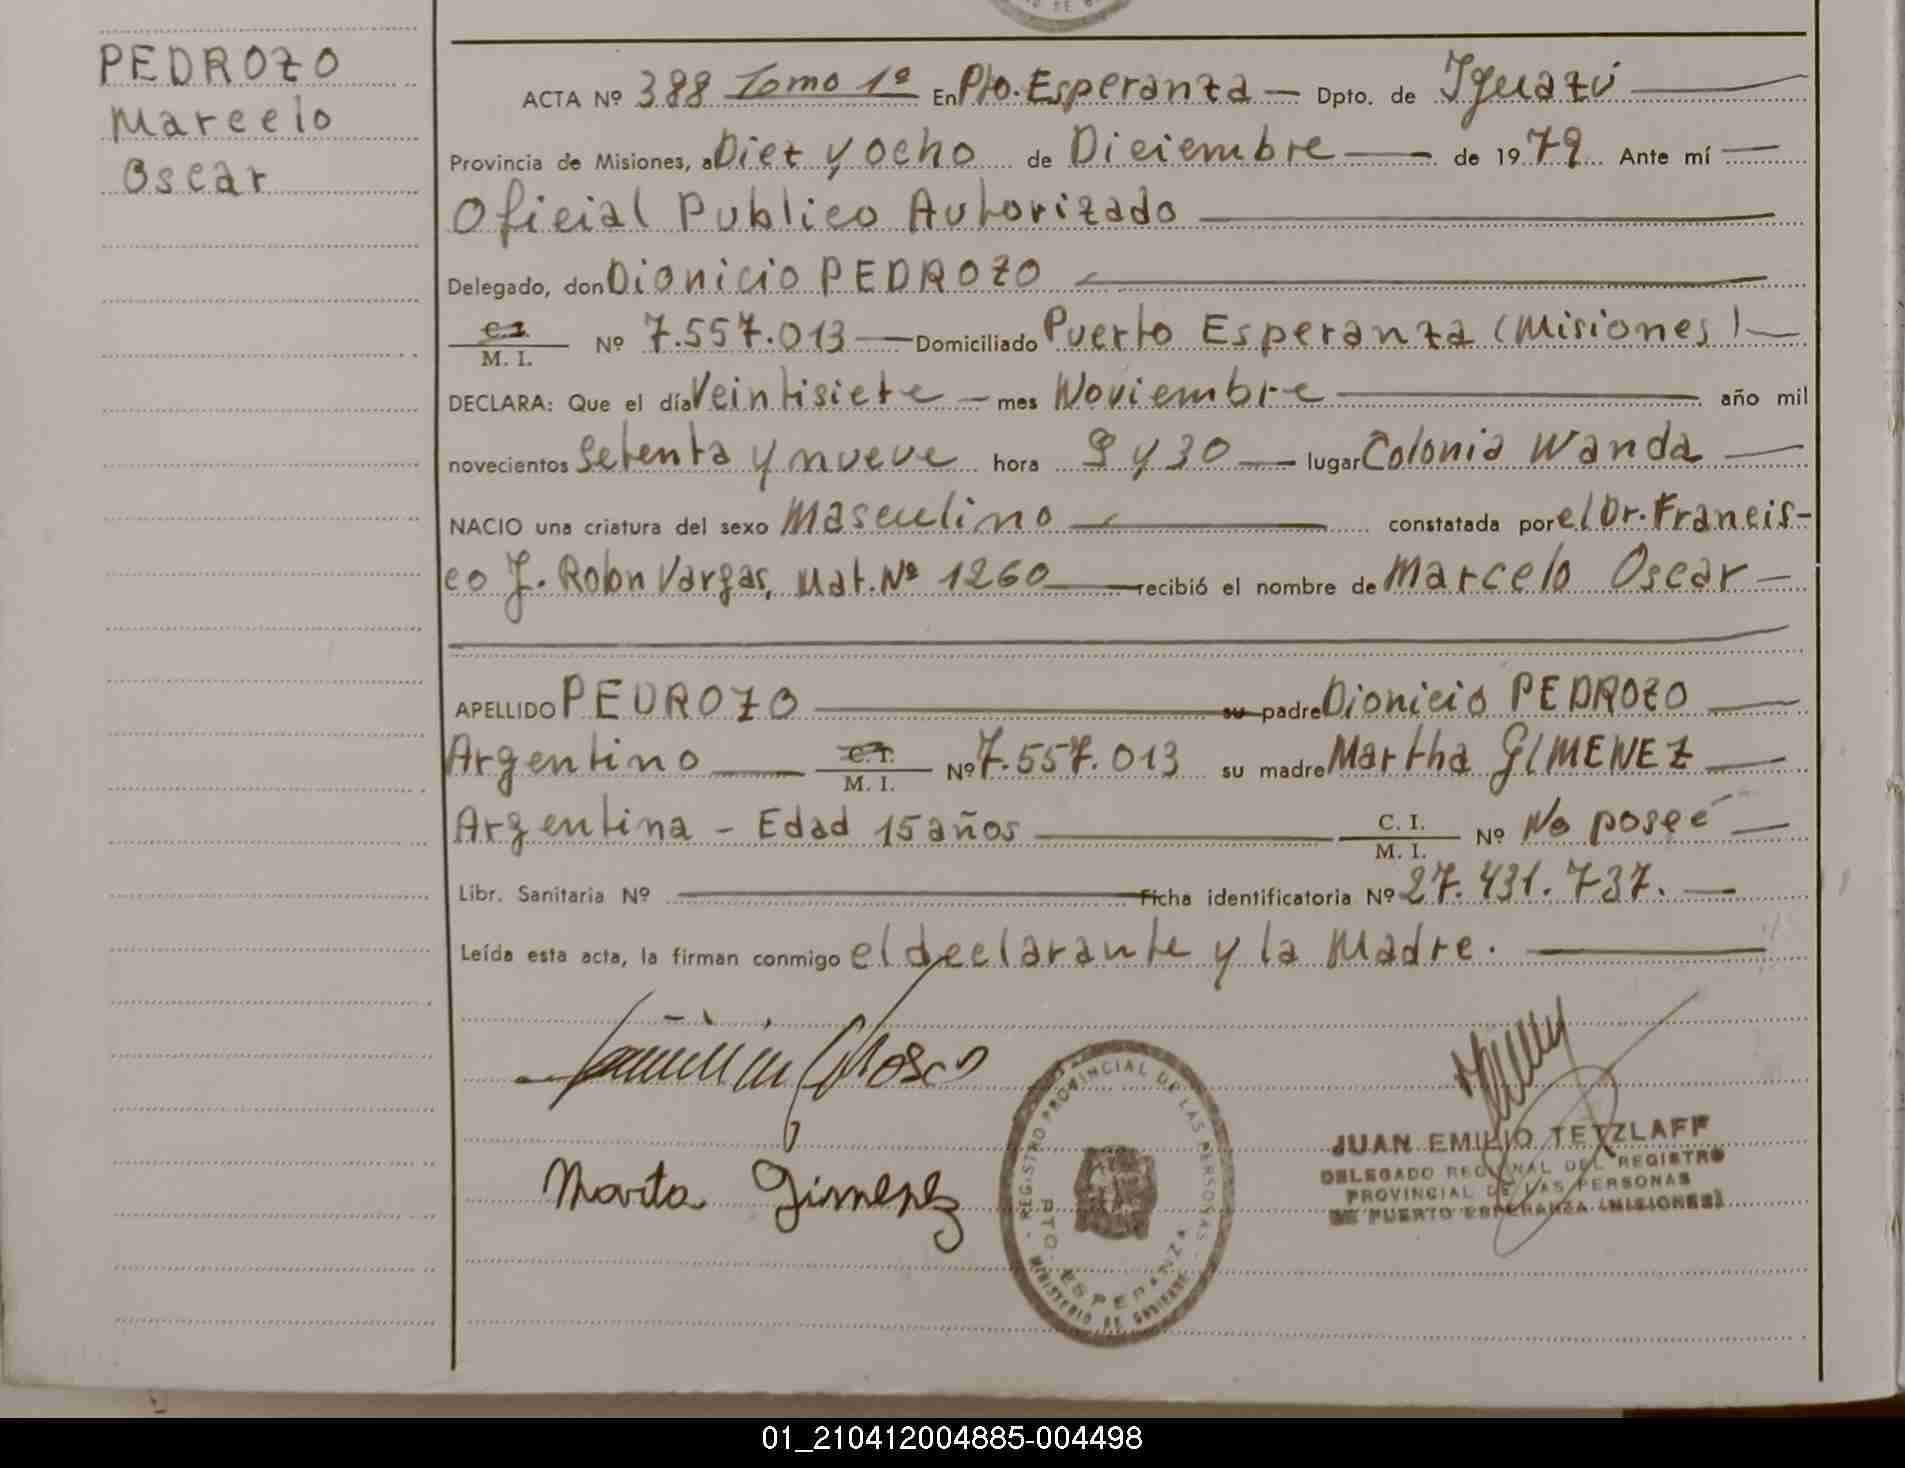 PEDROZO
Marcelo
Oscar
ACTA Nº 388 Tomo 1º En Pto. Esperanza — Dpto. de Iguazú
Provincia de Misiones, a Diez y ocho de Diciembre — de 1979 Ante mí —
Oficial Publico Autorizado
Delegado, don Dionicio PEDROZO
C.I. / M. I. Nº 7.557.013 — Domiciliado Puerto Esperanza (Misiones) —
DECLARA: Que el día Veintisiete — mes Noviembre — año mil
novecientos Setenta y nueve hora 9 y 30 — lugar Colonia Wanda —
NACIO una criatura del sexo Masculino — constatada por el Dr. Francis-
co J. Rolon Vargas, Mat. Nº 1260 — recibió el nombre de Marcelo Oscar —
APELLIDO PEDROZO — su padre Dionicio PEDROZO —
Argentino — C.I. / M. I. Nº 7.557.013 su madre Martha GIMENEZ —
Argentina - Edad 15 años — C. I. / M. I. Nº No poseé —
Libr. Sanitaria Nº — Ficha identificatoria Nº 27.431.737. —
Leída esta acta, la firman conmigo el declarante y la Madre. —
Marta Gimenez
REGISTRO PROVINCIAL DE LAS PERSONAS
PTO. ESPERANZA
MINISTERIO DE GOBIERNO
JUAN EMILIO TETZLAFF
DELEGADO REGIONAL DEL REGISTRO
PROVINCIAL DE LAS PERSONAS
DE PUERTO ESPERANZA (MISIONES)
01_210412004885-004498